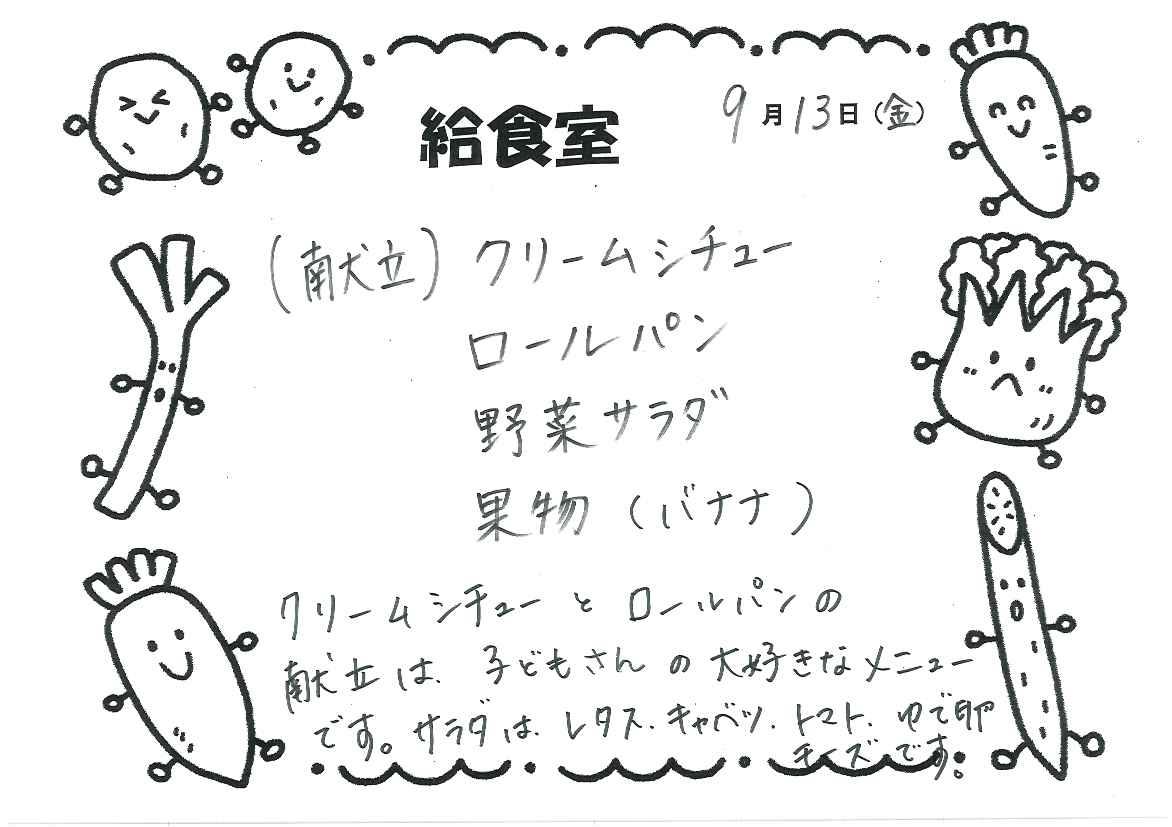 給食室
9月13日(金)
(献立) クリームシチュー
ロールパン
野菜サラダ
果物 (バナナ)
クリームシチューとロールパンの
献立は、子どもさんの大好きなメニュー
です。サラダは、レタス、キャベツ、トマト、ゆで卵
チーズです。